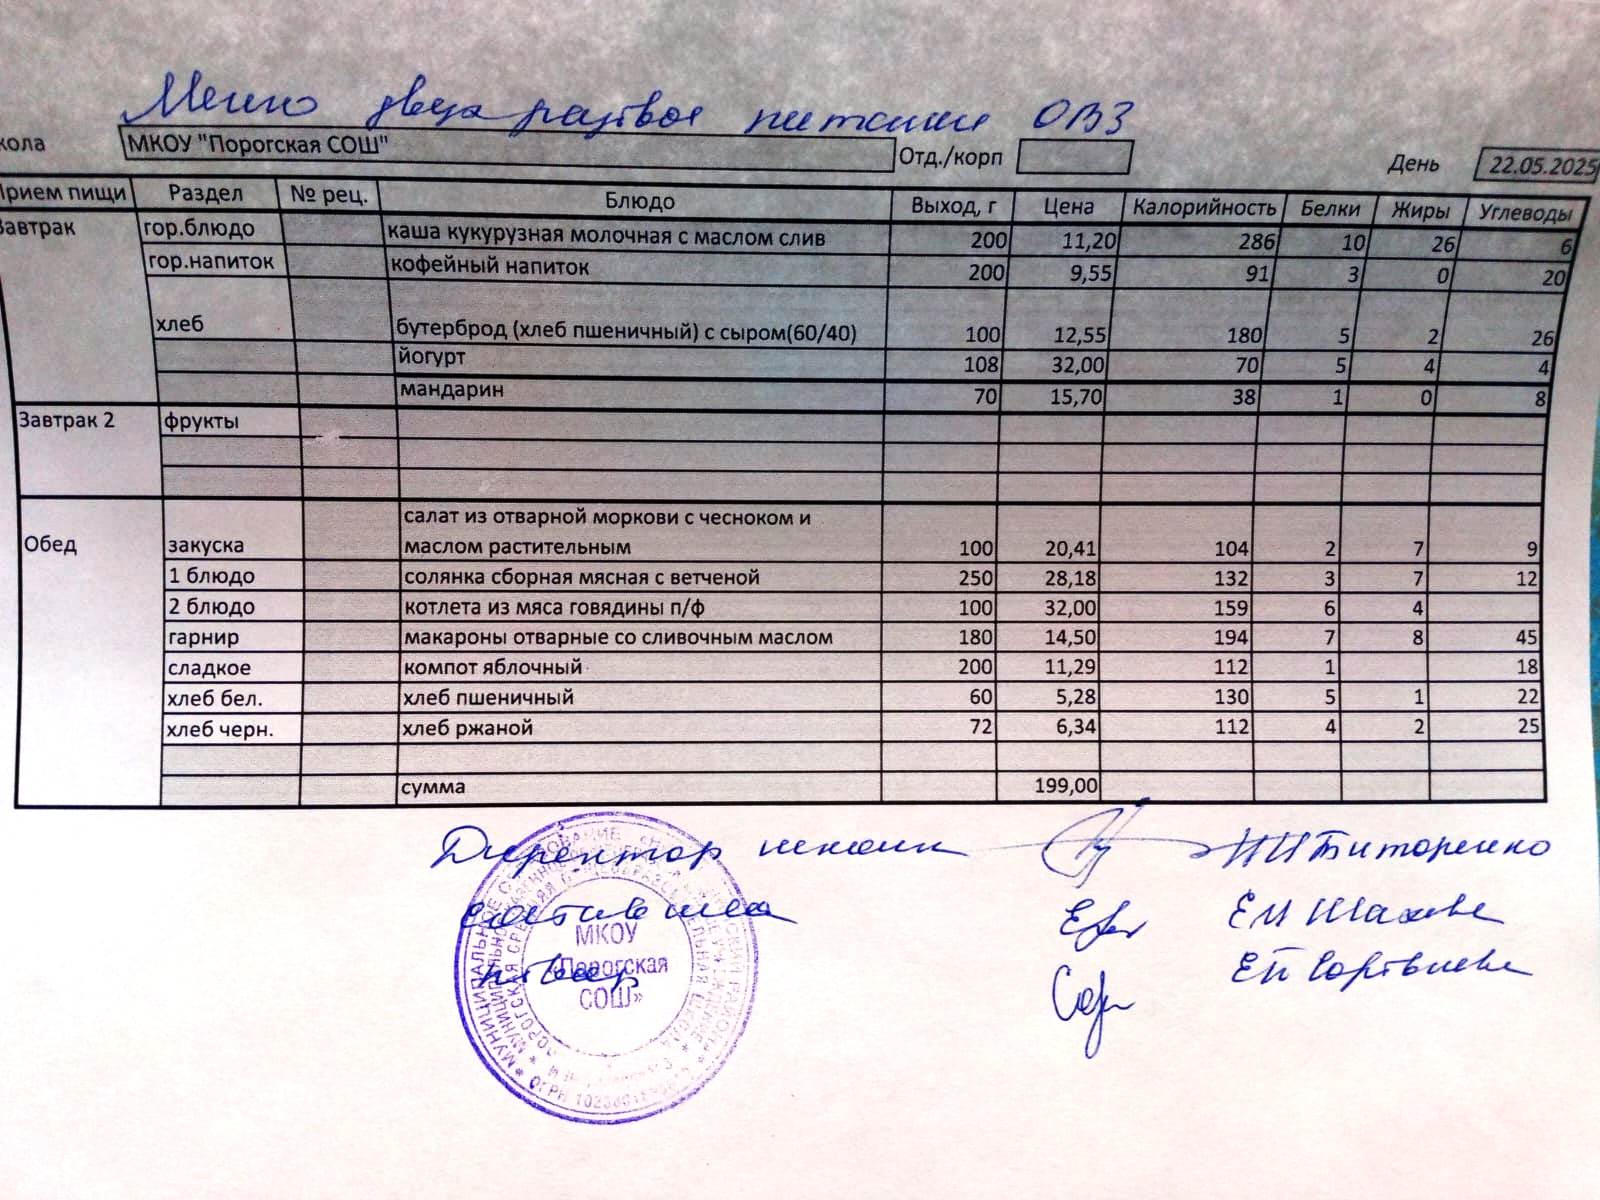 Меню двухразовое питание ОВЗ
кола МКОУ "Порогская СОШ" Отд./корп День 22.05.2025
Прием пищи Раздел № рец. Блюдо Выход, г Цена Калорийность Белки Жиры Углеводы
Завтрак гор.блюдо каша кукурузная молочная с маслом слив 200 11,20 286 10 26 6
гор.напиток кофейный напиток 200 9,55 91 3 0 20
хлеб бутерброд (хлеб пшеничный) с сыром(60/40) 100 12,55 180 5 2 26
йогурт 108 32,00 70 5 4 4
мандарин 70 15,70 38 1 0 8
Завтрак 2 фрукты
салат из отварной моркови с чесноком и
Обед закуска маслом растительным 100 20,41 104 2 7 9
1 блюдо солянка сборная мясная с ветченой 250 28,18 132 3 7 12
2 блюдо котлета из мяса говядины п/ф 100 32,00 159 6 4
гарнир макароны отварные со сливочным маслом 180 14,50 194 7 8 45
сладкое компот яблочный 200 11,29 112 1 18
хлеб бел. хлеб пшеничный 60 5,28 130 5 1 22
хлеб черн. хлеб ржаной 72 6,34 112 4 2 25
сумма 199,00
Директор школы
составила
повар
МКОУ
«Порогская
СОШ»